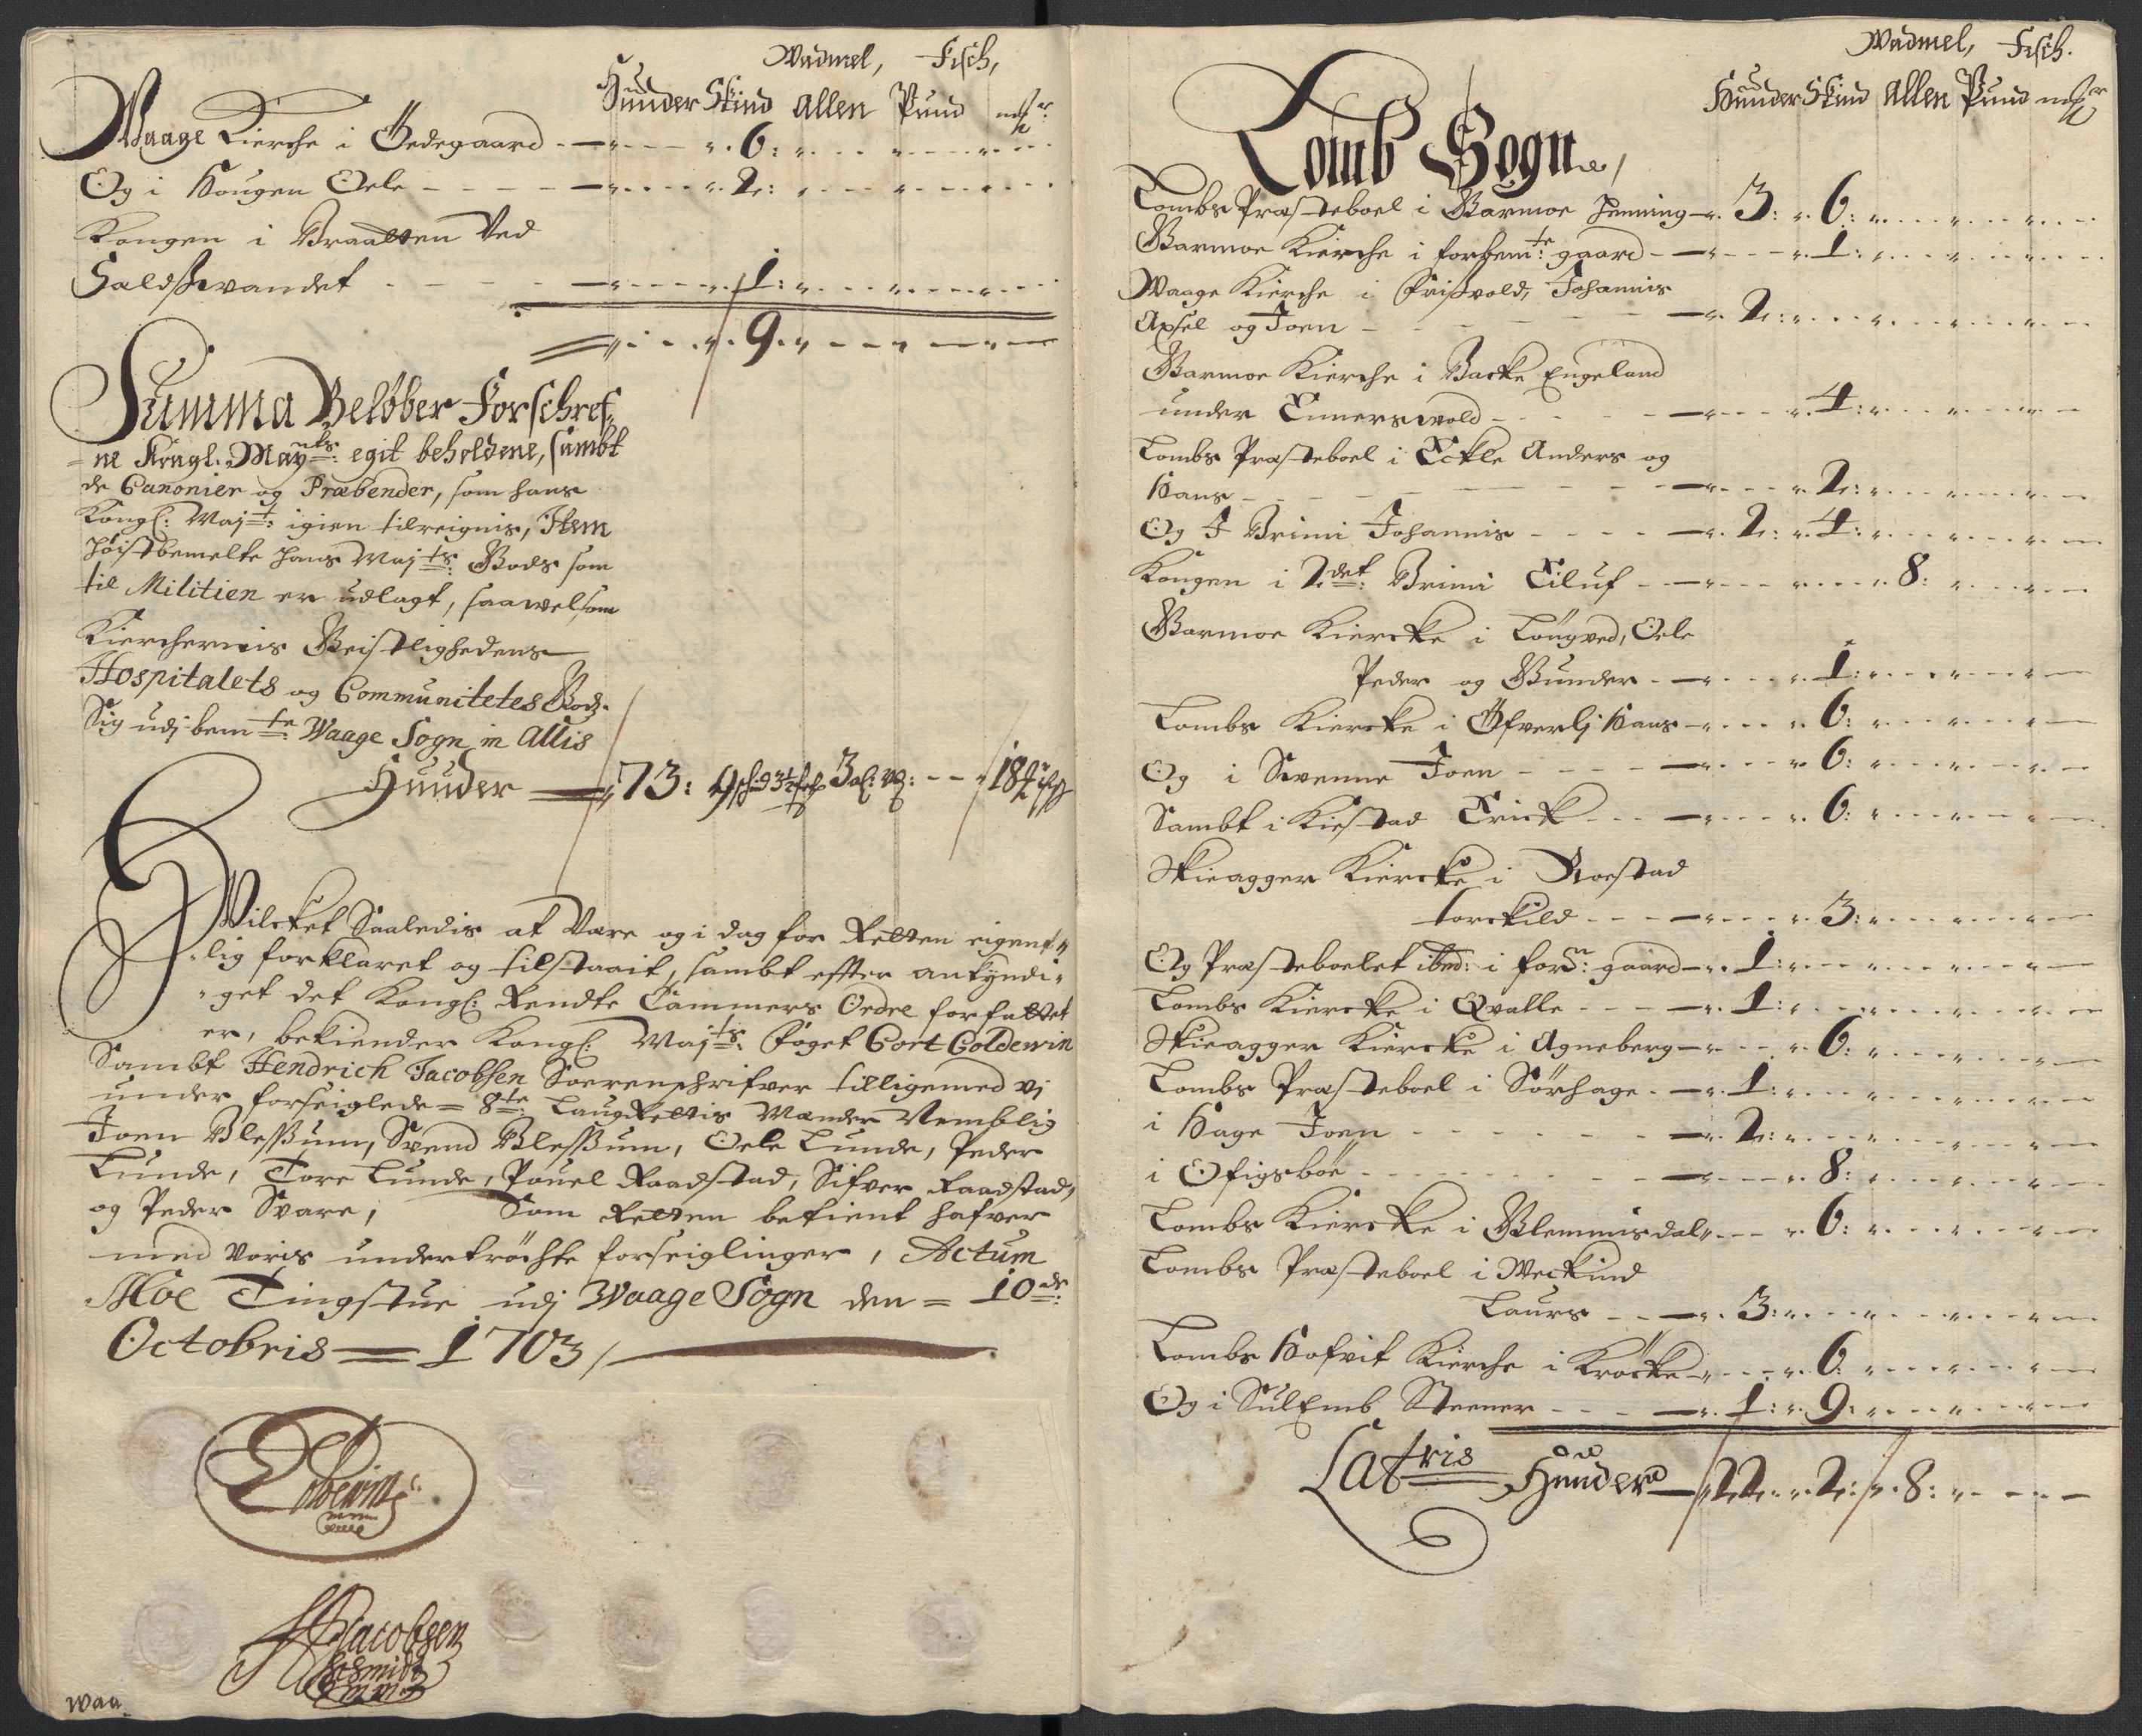 Wadmel, Fisch,
Hunder Skind Allen Pund
Waage Kierche i Ödegaard - 6:
Og i Hougen Oele - 2:
Kongen i Braatten Ved
- 1:
9
Summa Beløber Forschref
=ne Kongl. May.ts egit beholdene, sambt
de Canonier og Præbender, som hans
Kongl: Maj.t: igien tilreignis, Item
höistbemelte hans Maj.ts: Gods som
til Militien er udlagt, saawelsom
Kierchernis Geistlighedens
Hospitalets og Communitetes Gods.
Sig udj bem.te Waage Sogn in Allis
Hunder 73: 9 3 18
Hvilcket Saaledis at Være og i dag for Retten eigent
lig forklaret og tilstaait, sambt effter ankyndi
get det Kongl: Rendte Cammers Ordre forfattet
er, bekiender Kongl: Maj.ts: foget Gort Goldewin
Sambt Hendrich Jacobsen Sorenschrifver tilligemed vj
under forseiglede = 8te Laug Rettis Mænder Nemblig
Joen Blessum, Svend Blessum, Oele Lunde, Peder
Lunde, Tore Lunde, Pouel Raadstad, Sifver Raadstad,
og Peder Svare, Som Retten betient hafver
med voris undertröchte forseiglinger, Actum
Moe Tingstue udj Waage Sogn den = 10de:
Octobris = 1703
Jacobsen
Waa
Wadmel, Fisch.
Hunder Skind Allen Pund
Lomb Sogn
Lombs Præsteboel i Garmoe Henning 3: 6:
Garmoe Kierche i forbem.te: gaard - 1:
Waage Kierche i Johannis
Axsel og Joen - 2:
Garmoe Kierche i Backe Engeland
under - 4:
Lombs Præsteboel i Anders og
Hans - 2:
Og I Brimi Johannis - 2: 4:
Kongen i 2det: Brimi Eiluf - 8:
Garmoe Kiercke i Oele
Peder og Gunder - 1:
Lombs Kiercke i Öfverlj Hans - 6:
Og i Svenne Joen - 6:
Sambt i Kiestad Erick - 6:
Skieagger Kiercke i Roestad
Torckild - 3:
Og Præsteboelet ibed: i for.n: gaard - 1:
Lombs Kiercke i Qvalle - 1:
Skieagger Kiercke i Agneberg - 6:
Lombs Præsteboel i Sörhage - 1:
i Hage Joen - 2:
i Ofigsböe - 8:
Lombs Kiercke i Glemmisdal - 6:
Lombs Præsteboel i Meckind
Laurs - 3:
Lombs Hofvit Kierche i Kröcke - 6:
Og i Steener - 1: 9:
Latris Hunder 22: 2: 8: